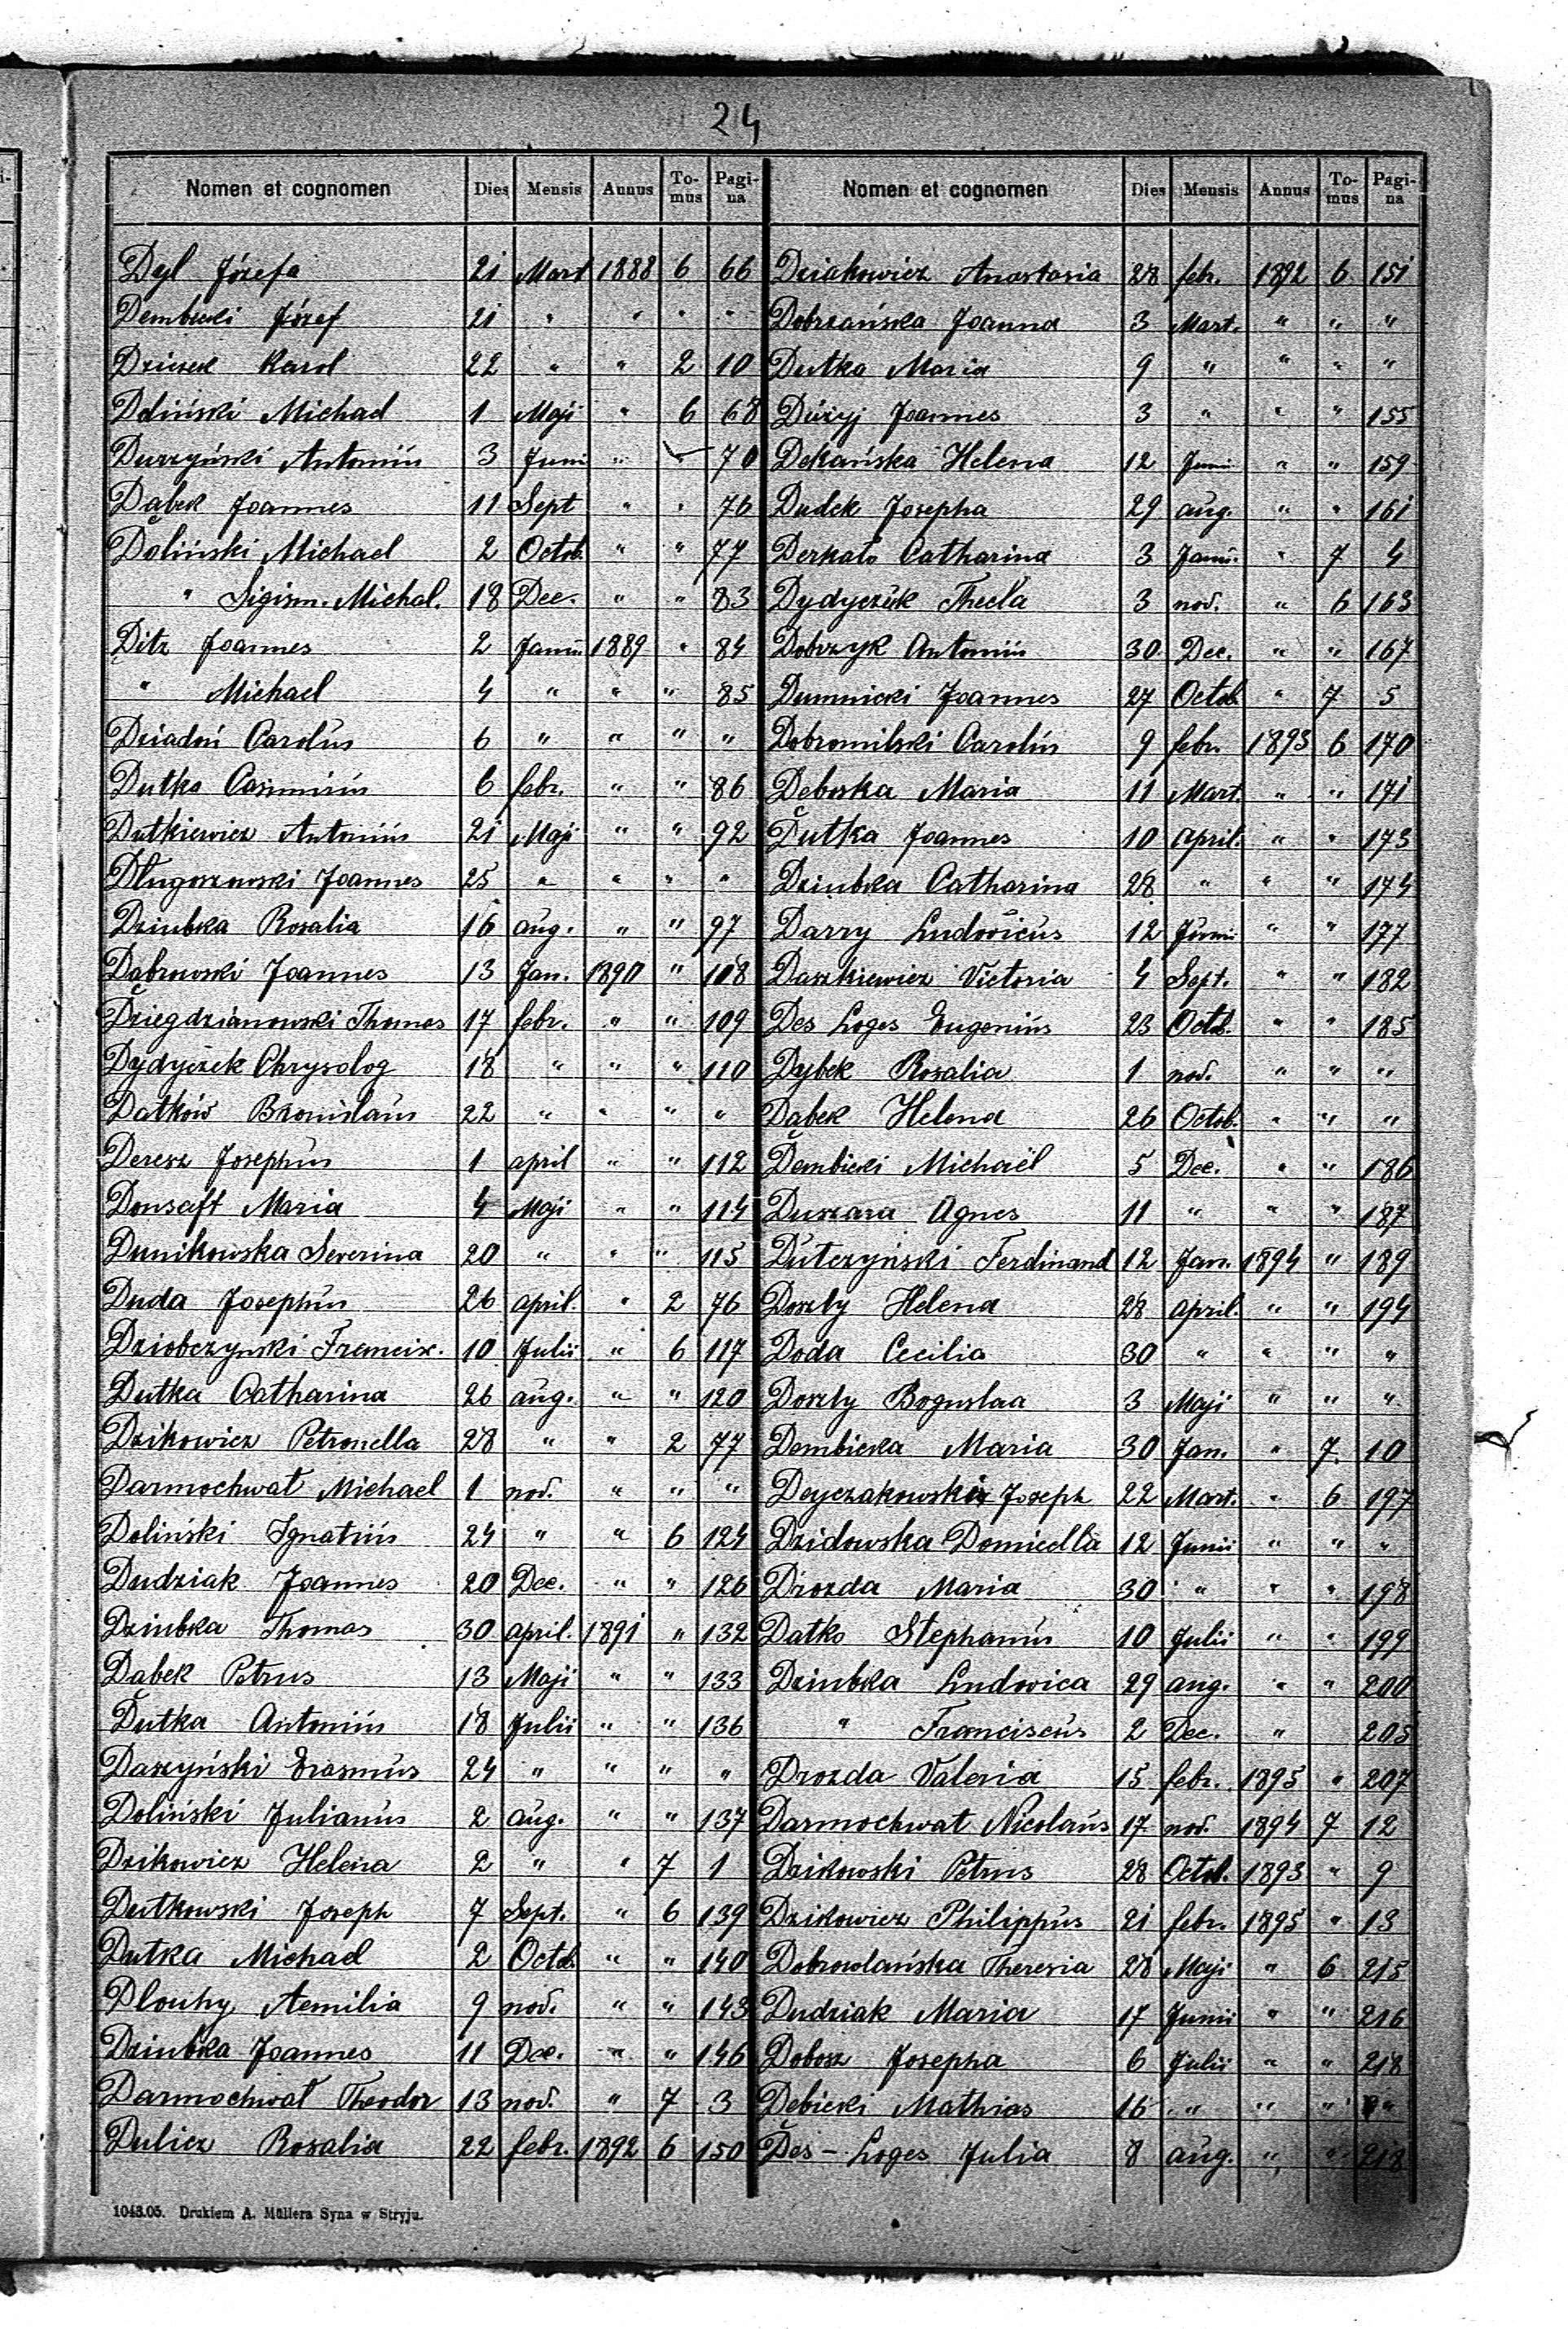 24
Nomen et cognomen Dies Mensis Annus To-mus Pagi-na
Dyl Józefa 21 Mart 1888 6 66
Dembicki Józef 21 " " " "
Dziesek Karol 22 " " 2 10
Doliński Michael 1 Maji " 6 68
Durzyński Antoniús 3 Junii " " 70
Dąbek Joannes 11 Sept " " 76
Doliński Michael 2 Octob. " " 77
" Sigism. Michal. 18 Dec. " " 83
Ditz Joannes 2 Januä 1889 " 84
" Michael 4 " " " 85
Dziadoń Carolús 6 " " " "
Dutko Casimiriús 6 febr. " " 86
Dutkiewicz Antoniús 21 Maji " " 92
Długoszowski Joannes 25 " " " "
Dziubka Rosalia 16 aúg. " " 97
Dąbrowski Joannes 13 Jan. 1890 " 108
Dziegdzianowski Thomas 17 febr. " " 109
Dydyczek Chrysolog 18 " " " 110
Datków Bronislaús 22 " " " "
Deresz Josephús 1 april " " 112
Donsaft Maria 4 Maji " " 114
Dunikowska Severina 20 " " " 115
Duda Josephús 26 april. " 2 76
Dziobczynski Francisc. 10 Julii " 6 117
Dutka Catharina 26 aúg. " " 120
Dzikowicz Petronella 28 " " 2 77
Darmochwał Michael 1 nov. " " "
Doliński Ignatiús 24 " " 6 124
Dudziak Joannes 20 Dec. " " 126
Dziubka Thomas 30 april. 1891 " 132
Dąbek Petrus 13 Maji " " 133
Dutka Antoniús 18 Julii " " 136
Daszyński Erasmús 24 " " " "
Doliński Julianús 2 aúg. " " 137
Dzikowicz Helena 2 " " 7 1
Dutkowski Joseph 7 Sept. " 6 139
Dutka Michael 2 Octob. " " 140
Dlouhy Aemilia 9 nov. " " 143
Dziubka Joannes 11 Dec. " " 146
Darmochwał Theodor 13 nov. " 7 3
Dulicz Rosalia 22 febr. 1892 6 150
Nomen et cognomen Dies Mensis Annus To-mus Pagi-na
Dziakowicz Anastasia 28 febr. 1892 6 151
Dobrzańska Joanna 3 Mart. " " "
Dutka Maria 9 " " " "
Dúżyj Joannes 3 " " " 155
Dekańska Helena 12 Junii " " 159
Dudek Josepha 29 aúg. " " 161
Derkało Catharina 3 Januä. " 7 4
Dydyczúk Thecla 3 nov. " 6 163
Dobrzyk Antoniús 30 Dec. " " 167
Dumnicki Joannes 27 Octob " 7 5
Dobromilski Carolús 9 febr. 1893 6 170
Dębska Maria 11 Mart. " " 171
Dutka Joannes 10 april. " " 173
Dziubka Catharina 28 " " " 174
Darry Ludovicús 12 Júnii " " 177
Daszkiewicz Victoria 4 Sept. " " 182
Des Loges Eugeniús 23 Octob. " " 185
Dybek Rosalia 1 nov. " " "
Dąbek Helena 26 Octob. " " "
Dembicki Michaël 5 Dec. " " 186
Duszara Agnes 11 " " " 187
Dutczyński Ferdinand 12 Jan. 1894 " 189
Doszły Helena 28 april. " " 194
Doda Cecilia 30 " " " "
Doszły Boguslaa 3 Maji " " "
Dembicka Maria 30 Jan. " 7. 10
Deyczakowski Joseph 22 Mart. " 6 197
Dzidowska Domicella 12 Junii " " "
Drozda Maria 30 " " " 198
Datko Stephanús 10 Julii " " 199
Dziubka Ludovica 29 aug. " " 200
" Franciscús 2 Dec. " 205
Drozda Valeria 15 febr. 1895 " 207
Darmochwat Nicolaús 17 nov. 1894 7 12
Dzikowski Petrus 28 Octob. 1893 " 9
Dzikowicz Philippús 21 febr. 1895 " 13
Dobrowlańska Theresia 28 Maji " 6 215
Dudziak Maria 17 Junii " " 216
Dobosz Josepha 6 Júlii " " 218
Dębicki Mathias 16 " " " "
Des-Loges Julia 8 aug. " " 218
1043.05. Drukiem A. Müllera Syna w Stryju.